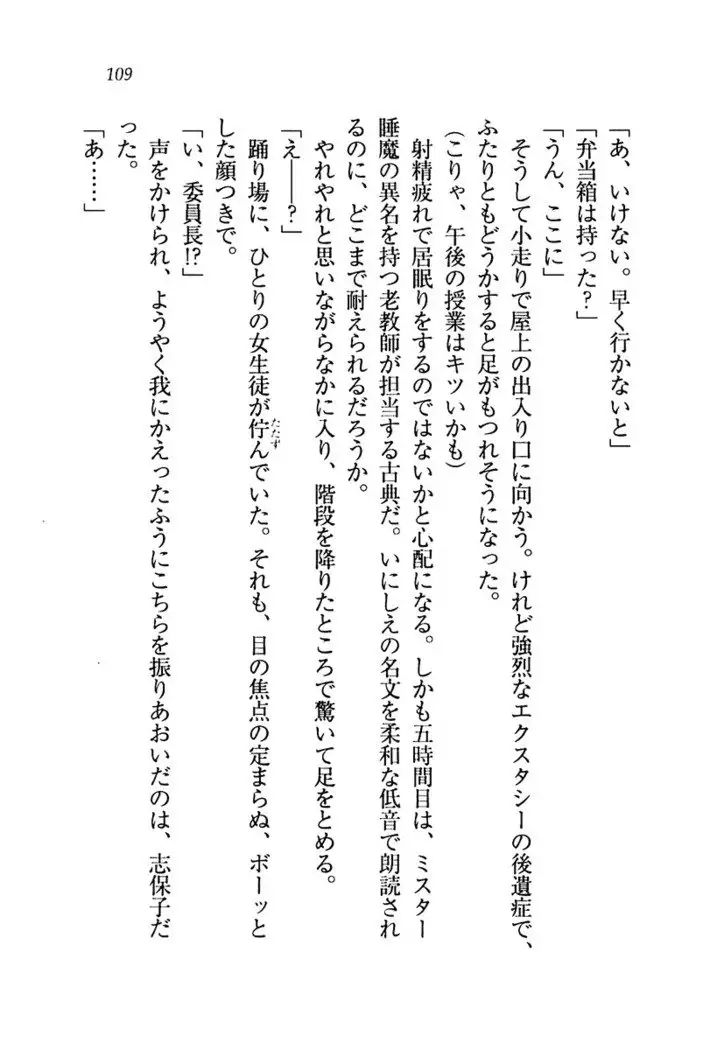 109
「あ、いけない。早く行かないと」
「弁当箱は持った?」
「うん、ここに」
そうして小走りで屋上の出入り口に向かう。けれど強烈なエクスタシーの後遺症で、
ふたりともどうかすると足がもつれそうになった。
(こりゃ、午後の授業はキツいかも)
射精疲れで居眠りをするのではないかと心配になる。しかも五時間目は、ミスター
睡魔の異名を持つ老教師が担当する古典だ。いにしえの名文を柔和な低音で朗読され
るのに、どこまで耐えられるだろうか。
やれやれと思いながらなかに入り、階段を降りたところで驚いて足をとめる。
「え――?」
踊り場に、ひとりの女生徒が佇んでいた。それも、目の焦点の定まらぬ、ボーッと
たたず
した顔つきで。
「い、委員長!?」
声をかけられ、ようやく我にかえったふうにこちらを振りあおいだのは、志保子だ
った。
「あ……」